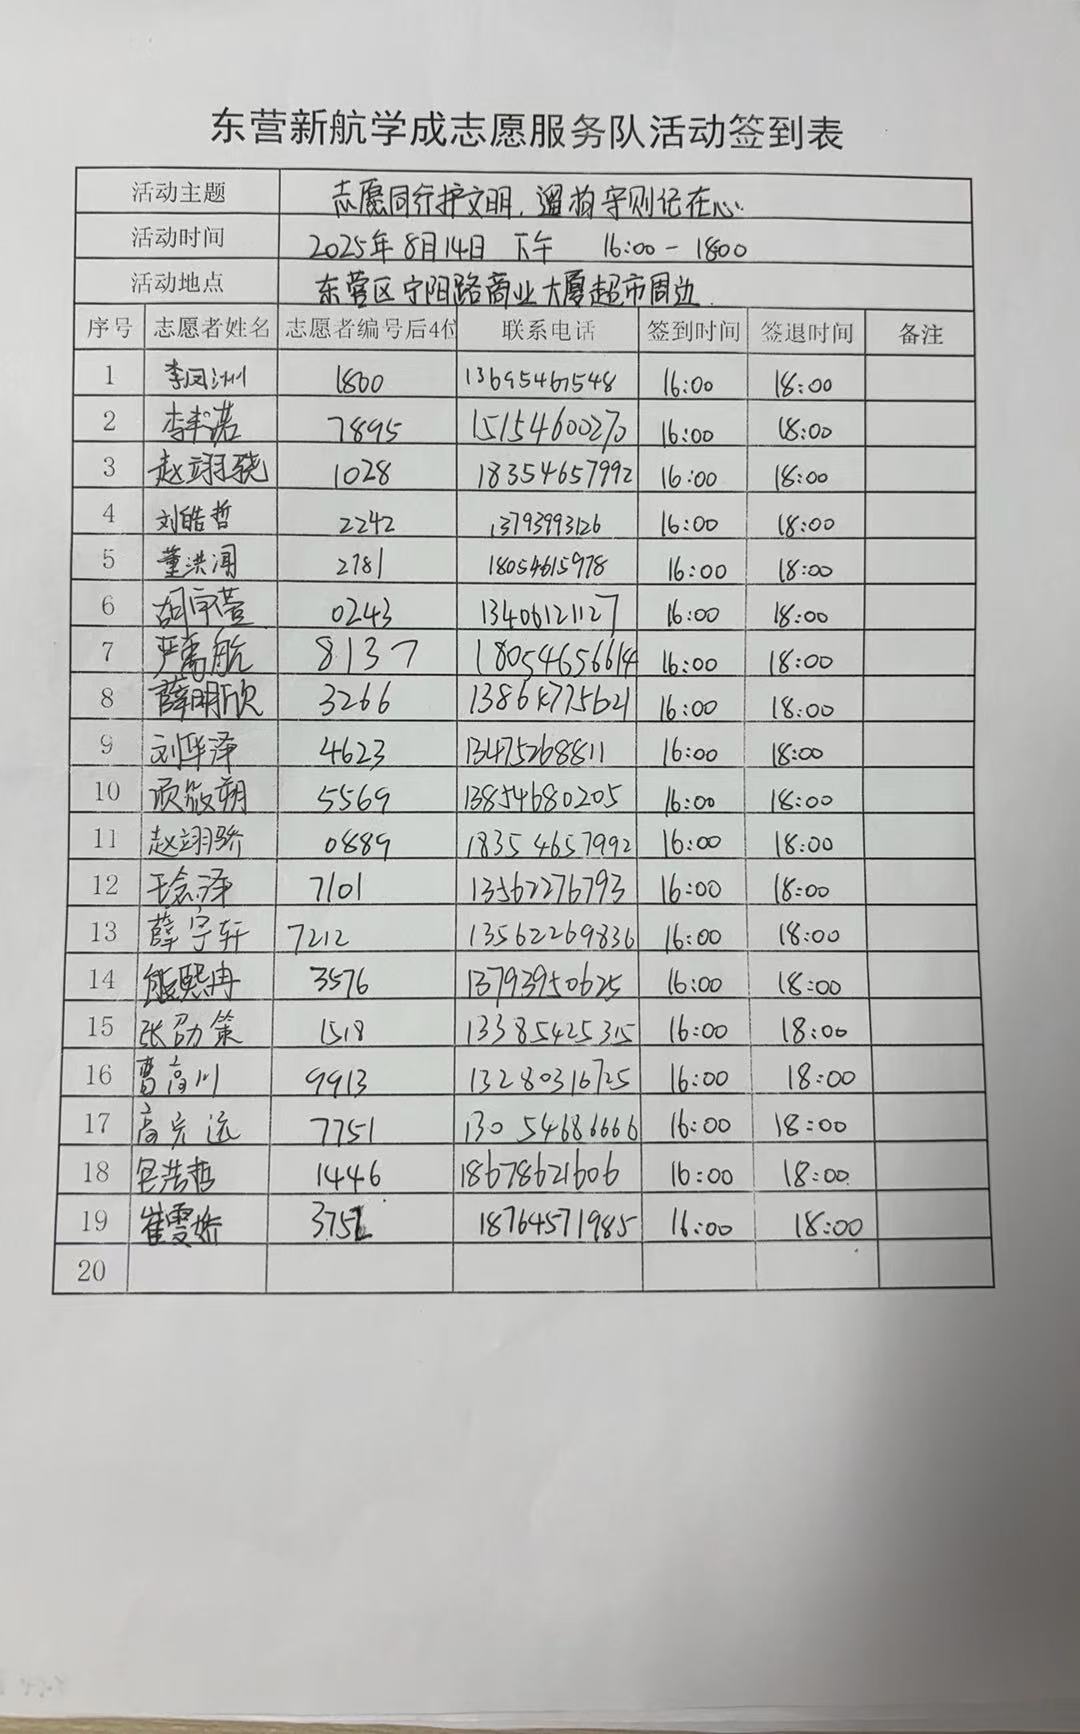 东营新航学成志愿服务队活动签到表
活动主题 志愿同行护文明，遛狗守则记在心
活动时间 2025年8月14日 下午 16:00-1800
活动地点 东营区宁阳路商业大厦超市周边
序号 志愿者姓名 志愿者编号后4位 联系电话 签到时间 签退时间 备注
1 李同洲 1860 13695467548 16:00 18:00
2 李丰诺 7895 15154600270 16:00 18:00
3 赵翊骁 1028 18354657992 16:00 18:00
4 刘皓哲 2242 13793993126 16:00 18:00
5 董洪闻 2781 18054615978 16:00 18:00
6 胡 0243 13406121127 16:00 18:00
7 严禹航 8137 18054656614 16:00 18:00
8 薛明欣 3266 13864775621 16:00 18:00
9 刘华泽 4623 13475268811 16:00 18:00
10 项筱朔 5569 13854680205 16:00 18:00
11 赵翊骄 0889 18354657992 16:00 18:00
12 王念泽 7101 13562276793 16:00 18:00
13 薛宇轩 7212 13562269836 16:00 18:00
14 熊熙冉 3576 13793950625 16:00 18:00
15 张劭策 1518 13385425315 16:00 18:00
16 曹高川 9913 13280316725 16:00 18:00
17 高宏远 7751 13054686666 16:00 18:00
18 浩哲 1446 18678621606 16:00 18:00
19 崔雯娇 3752 18764571985 16:00 18:00
20